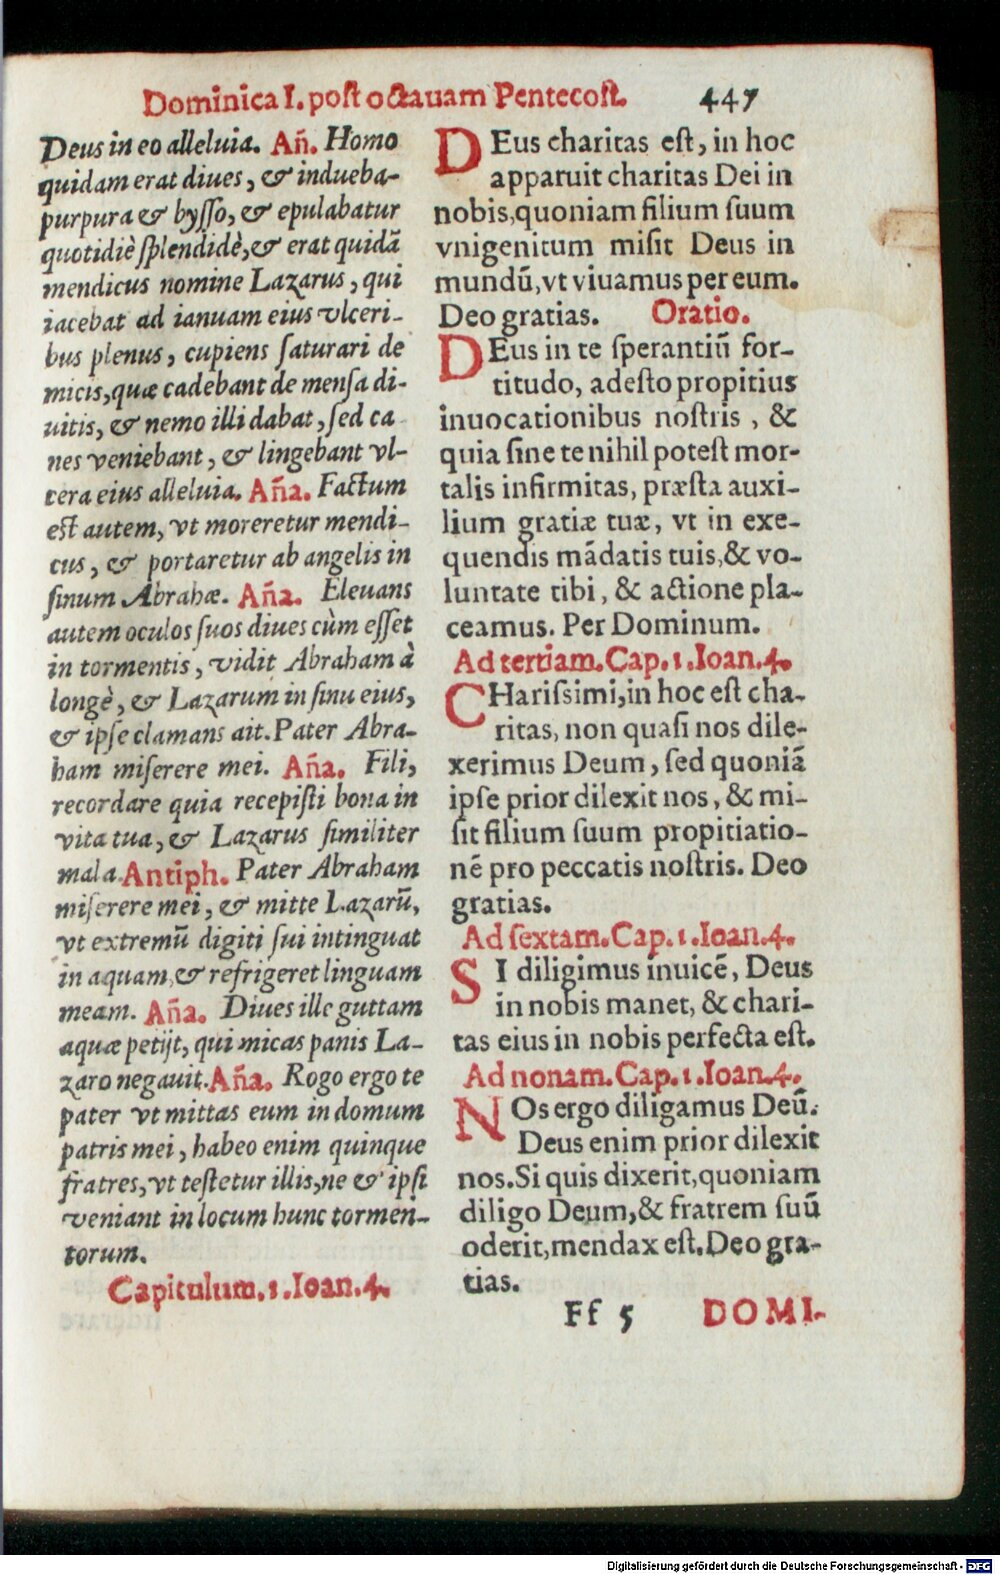 Dominica I. post octauam Pentecost. 447
Deus in eo alleluia. Añ. Homo
quidam erat diues, & indueba-
purpura & bysso, & epulabatur
quotidiè splendidè, & erat quidã
mendicus nomine Lazarus, qui
iacebat ad ianuam eius vlceri-
bus plenus, cupiens saturari de
micis, quæ cadebant de mensa di-
uitis, & nemo illi dabat, sed ca
nes veniebant, & lingebant vl-
cera eius alleluia. Aña. Factum
est autem, vt moreretur mendi-
cus, & portaretur ab angelis in
sinum Abrahæ. Aña. Eleuans
autem oculos suos diues cùm esset
in tormentis, vidit Abraham à
longè, & Lazarum in sinu eius,
& ipse clamans ait. Pater Abra-
ham miserere mei. Aña. Fili,
recordare quia recepisti bona in
vita tua, & Lazarus similiter
mala. Antiph. Pater Abraham
miserere mei, & mitte Lazarũ,
vt extremũ digiti sui intinguat
in aquam, & refrigeret linguam
meam. Aña. Diues ille guttam
aquæ petijt, qui micas panis La-
zaro negauit. Aña. Rogo ergo te
pater vt mittas eum in domum
patris mei, habeo enim quinque
fratres, vt testetur illis, ne & ipsi
veniant in locum hunc tormen-
torum.
Capitulum. 1. Ioan. 4.
DEus charitas est, in hoc
apparuit charitas Dei in
nobis, quoniam filium suum
vnigenitum misit Deus in
mundũ, vt viuamus per eum.
Deo gratias. Oratio.
DEus in te sperantiũ for-
titudo, adesto propitius
inuocationibus nostris, &
quia sine te nihil potest mor-
talis infirmitas, præsta auxi-
lium gratiæ tuæ, vt in exe-
quendis mãdatis tuis, & vo-
luntate tibi, & actione pla-
ceamus. Per Dominum.
Ad tertiam. Cap. 1. Ioan. 4.
CHarissimi, in hoc est cha-
ritas, non quasi nos dile-
xerimus Deum, sed quoniã
ipse prior dilexit nos, & mi-
sit filium suum propitiatio-
nẽ pro peccatis nostris. Deo
gratias.
Ad sextam. Cap. 1. Ioan. 4.
SI diligimus inuicẽ, Deus
in nobis manet, & chari-
tas eius in nobis perfecta est.
Ad nonam. Cap. 1. Ioan. 4.
NOs ergo diligamus Deũ.
Deus enim prior dilexit
nos. Si quis dixerit, quoniam
diligo Deum, & fratrem suũ
oderit, mendax est. Deo gra-
tias.
Ff 5 DOMI-
Digitalisierung gefördert durch die Deutsche Forschungsgemeinschaft - DFG